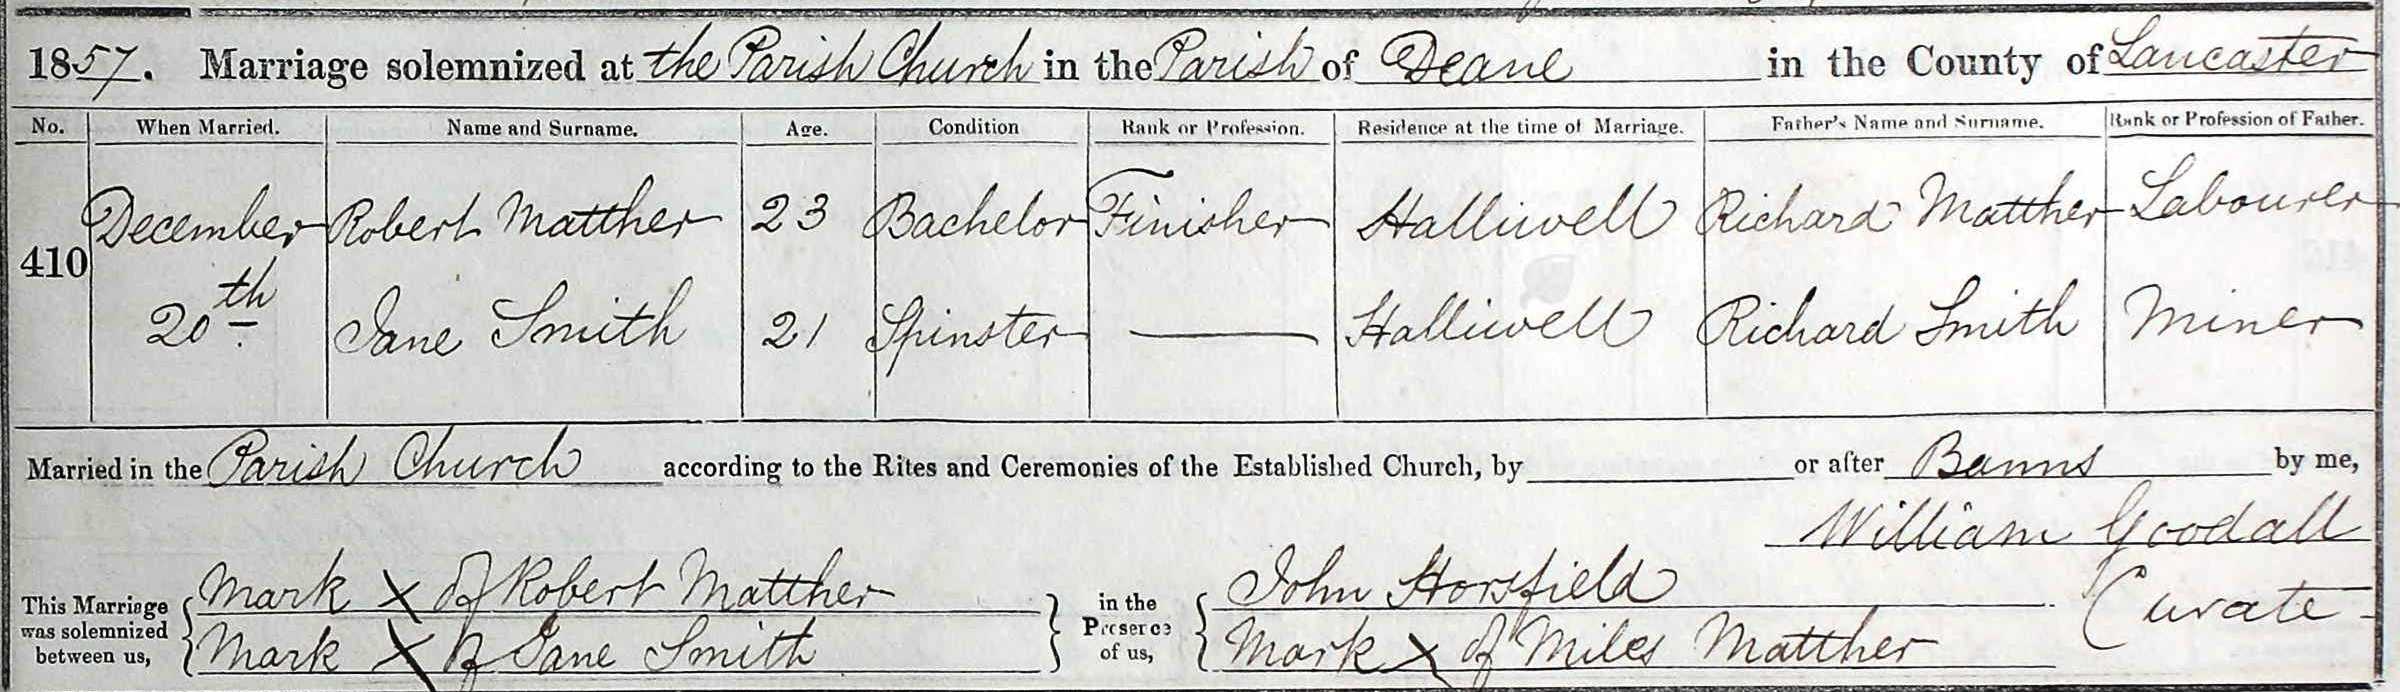 1857. Marriage solemnized at the Parish Church in the Parish of Deane in the County of Lancaster
No. When Married. Name and Surname. Age. Condition Rank or Profession. Residence at the time of Marriage. Father's Name and Surname. Rank or Profession of Father.
410 December Robert Matther 23 Bachelor Finisher Halliwell Richard Matther Labourer
20th Jane Smith 21 Spinster — Halliwell Richard Smith Miner
Married in the Parish Church according to the Rites and Ceremonies of the Established Church, by or after Banns by me,
William Goodall
Curate
This Marriage was solemnized between us, Mark X of Robert Matther
Mark X of Jane Smith
in the Presence of us, John Horsfield
Mark X of Miles Matther